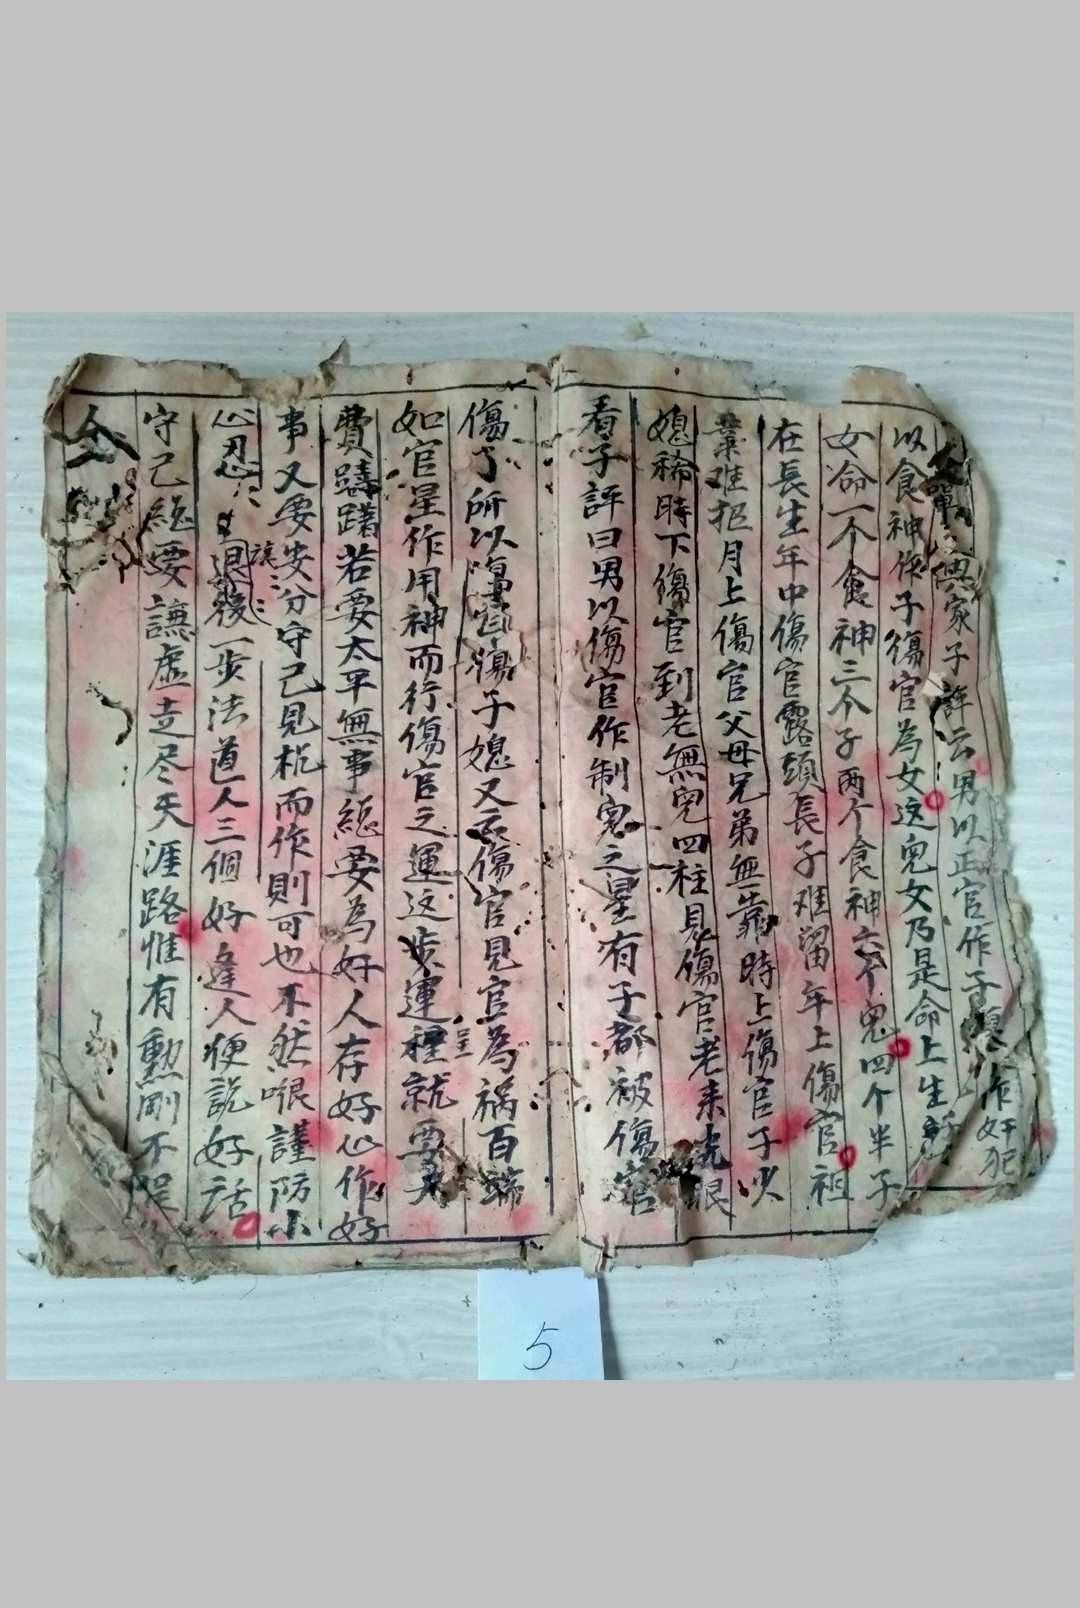 單 家子評云男以正官作子 作奸犯
以食神作子傷官為女这兒女乃是命上生
女命一个食神三个子两个食神六个兒四个半子
在長生年中傷官露頭長子难留年上傷官祖
業难招月上傷官父母兄弟無靠時上傷官子少
媳稀時下傷官到老無兒四柱見傷官老来 眼
看子評曰男以傷官作制兒之星有子都被傷官
傷了所以 傷子媳又云傷官見官為祸百端
如官星作用神而行傷官之運这步運程就要大
費躊躇若要太平無事總要為好人存好心作好
事又要安分守己見机而作則可也不然哏謹防小
心忍 讓退後一步法道人三個好逢人便說好話
守己總要謙虛走尽天涯路惟有勳剛不
全
5